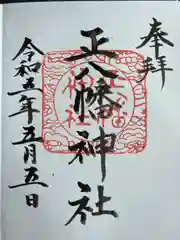 奉拝
正八幡神社
令和五年五月五日